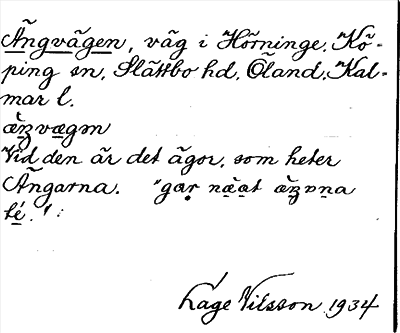 Ängvägen, väg i Hörninge, Kö-
ping sn, Slättbo hd, Öland, Kal-
mar l.
äŋvægən
Vid den är det ägor, som heter
Ängarna. "gaṛ næat äŋvṇa
té."
Låge Nilsson 1934